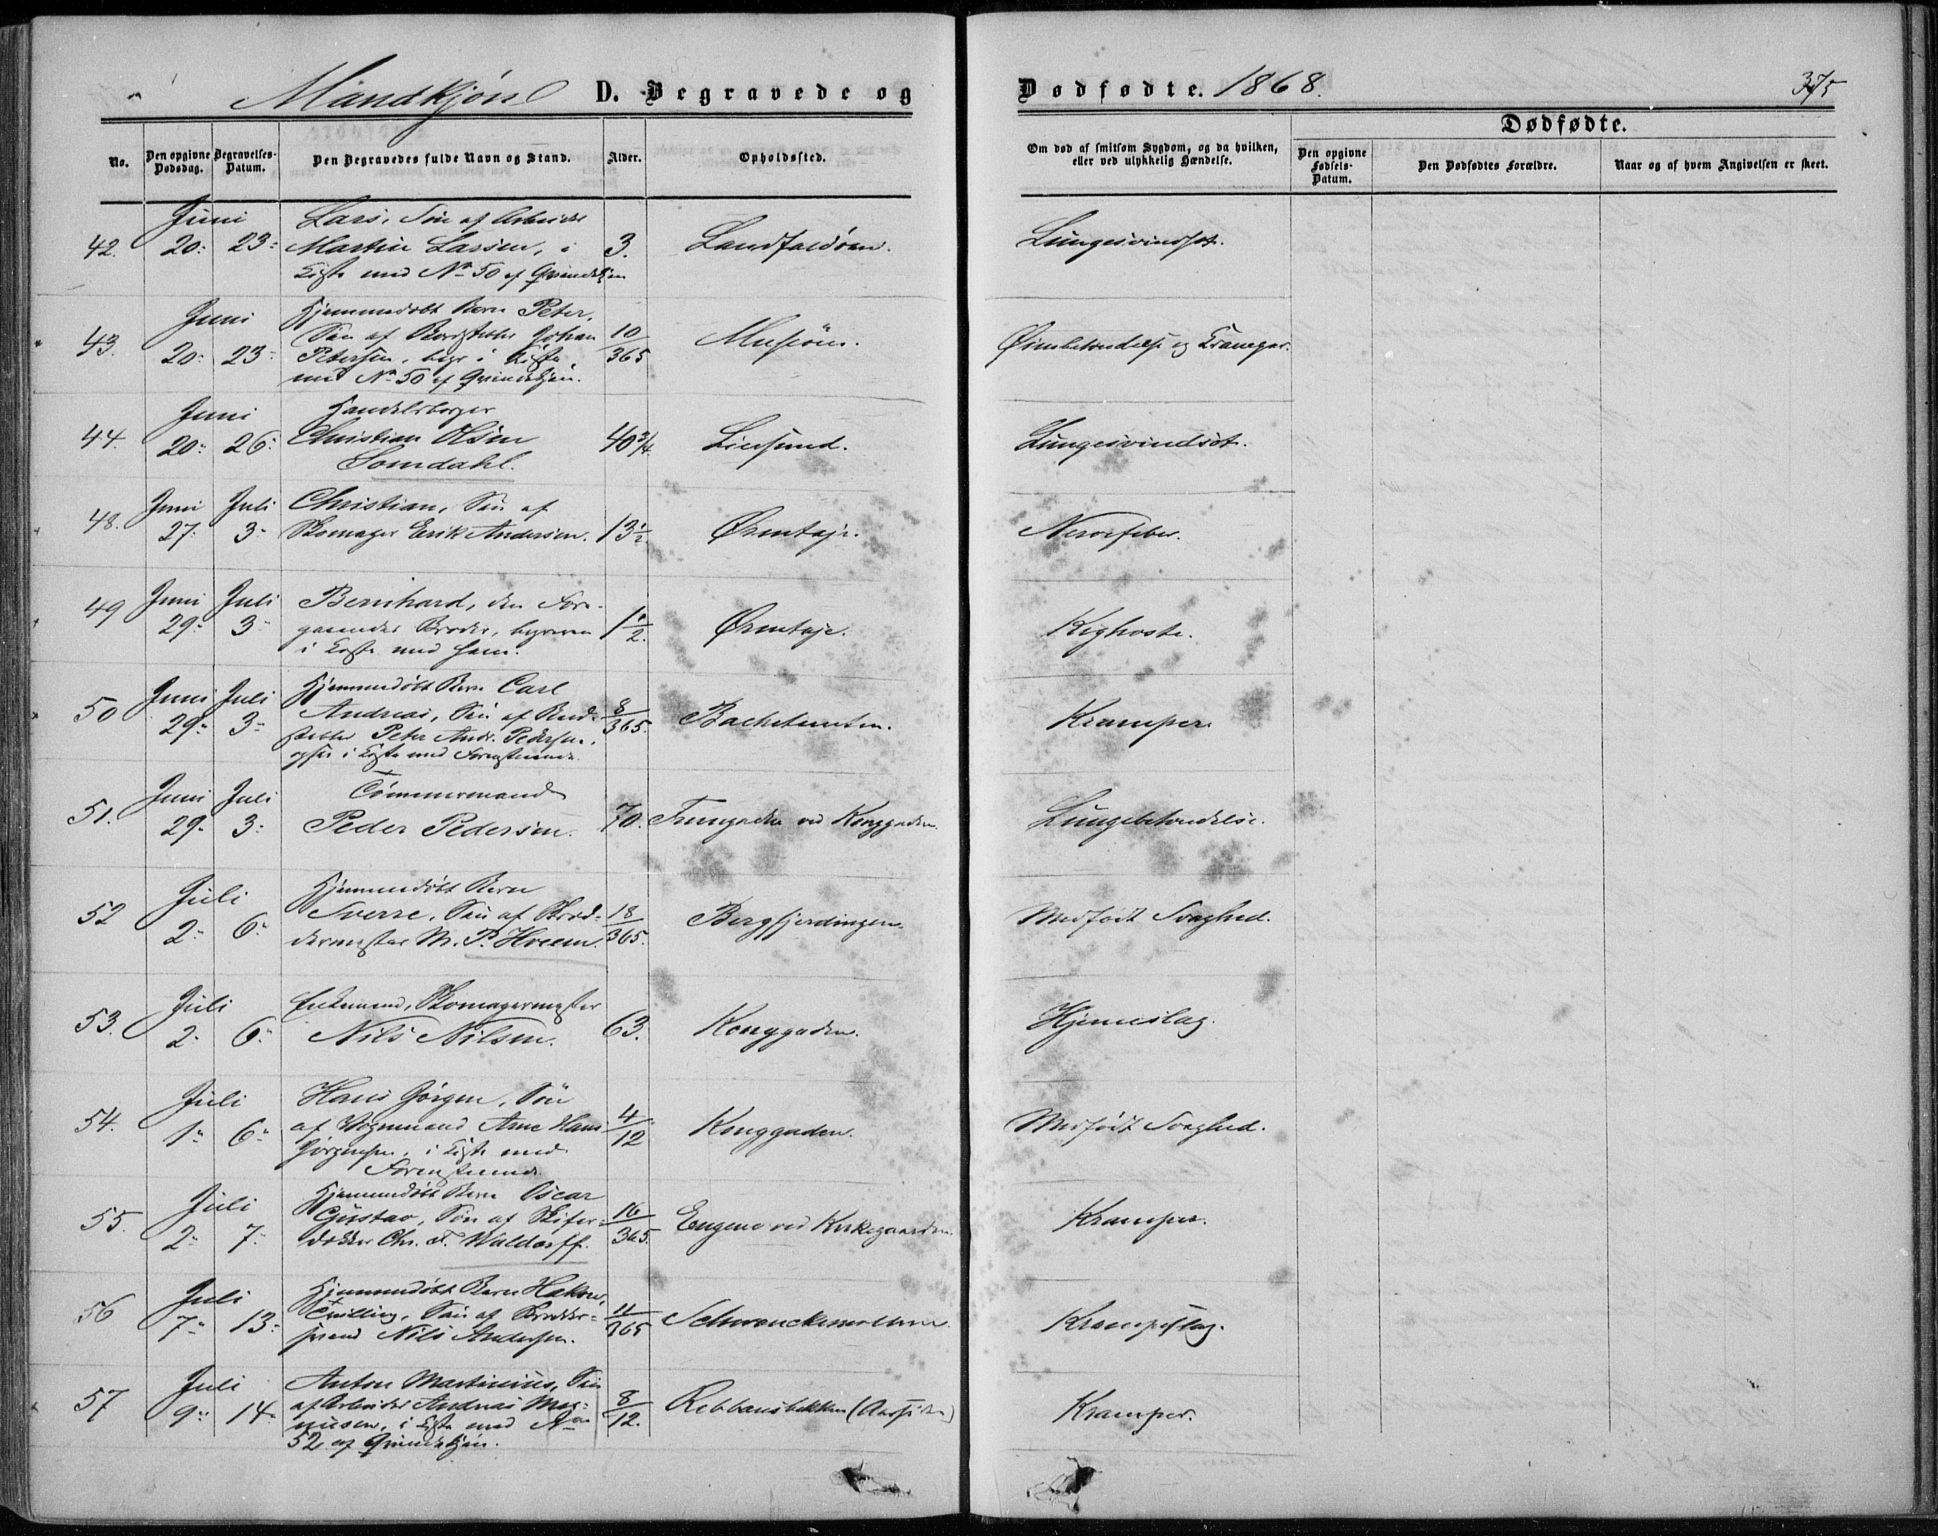 Mandkjøn D. Begravede og Dødfødte. 1868. 375
No.
Den opgivne Dødsdag.
Begravelses-Datum.
Den Begravedes fulde Navn og Stand.
Alder.
Opholdssted.
Om død af smitsom Sygdom, og da hvilken, eller ved ulykkelig Hændelse.
Dødfødte.
Den opgivne Fødsels-Datum.
Den Dødfødtes Forældre.
Naar og af hvem Angivelsen er skeet.
42. Juni 20. 23.
Lars, Søn af Arbeider
Martin Larsen, i
Kiste med No 50 af Qvindekjøn
3. Landfaldøen. Lungesvindsot.
43. Juni 20. 23.
Hjemmedøbt Barn Peter,
Søn af Johan
Petersen, i Kiste
med No 50 af Qvindekjøn.
10/365 og
44. Juni 20. 26.
Handelsborger
Christian Olsen
Somdahl.
40 3/4 Liersund. Lungesvindsot.
48. Juni 27. Juli 3.
Christian, Søn af
Skomager Erik Andersen.
13 1/2 Ørentaje. Nervefeber.
49 Juni 29. Juli 3.
Bernhard, den Fore-
gaaendes Broder,
i Kiste med ham.
1 1/2. Ørentaje. Kighoste.
50 Juni 29. Juli 3.
Hjemmedøbt Barn Carl
Andreas, Søn af
Peter Andr. Pedersen,
i Kiste med Foregaaende.
8/365. Krampe.
51. Juni 29. Juli 3.
Tømmermand
Peder Pedersen.
70. ved Konggaden. Lungebetændelse.
52 Juli 2. 6.
Hjemmedøbt Barn
Sverre, Søn af Skræd-
dermester M. P. Hveem.
18/365. Bergfjerdingen. Medfødt Svaghed.
53. Juli 2. 6.
Enkemand, Skomagermester
Nils Nilsen.
63. Konggaden. Hjerneslag.
54. Juli 1. 6.
Hans Jørgen, Søn
af Vognmand Arne Hans
Jørgensen, i Kiste med
Foregaaende.
4/12 Konggaden. Medfødt Svaghed.
55. Juli 2. 7.
Hjemmedøbt Barn Oscar
Gustav, Søn af Skifer-
dækker Chr. F. Waldorff.
16/365. Engene ved Kirkegaarden. Krampe.
56 Juli 7. 13.
Hjemmedøbt Barn Hakon,
Tvilling, Søn af
Nils Andersen.
11/365 Schwenckemollen. Krampeslag.
57 Juli 9. 14.
Anton Martinius, Søn
af Arbeider Andreas Mag-
nusen, i Kiste med No
52 af Qvindekjøn.
8/12. Rebbansbakken (Aassiden) Krampe.